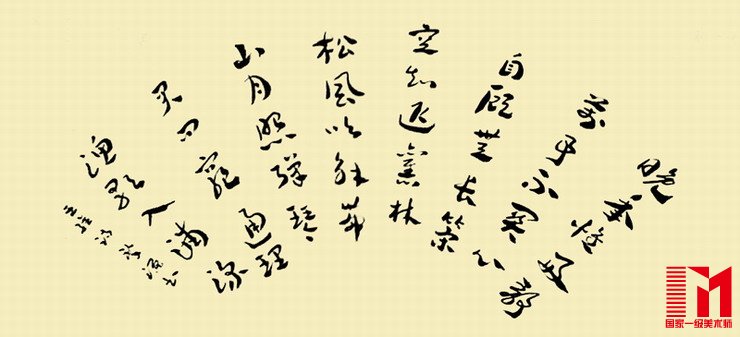 晚年惟好静
萬事不关心
自顾無长策
空知返舊林
松風吹解带
山月照弹琴
君问窮通理
渔歌入浦深
王维诗
书
国家一级美术师